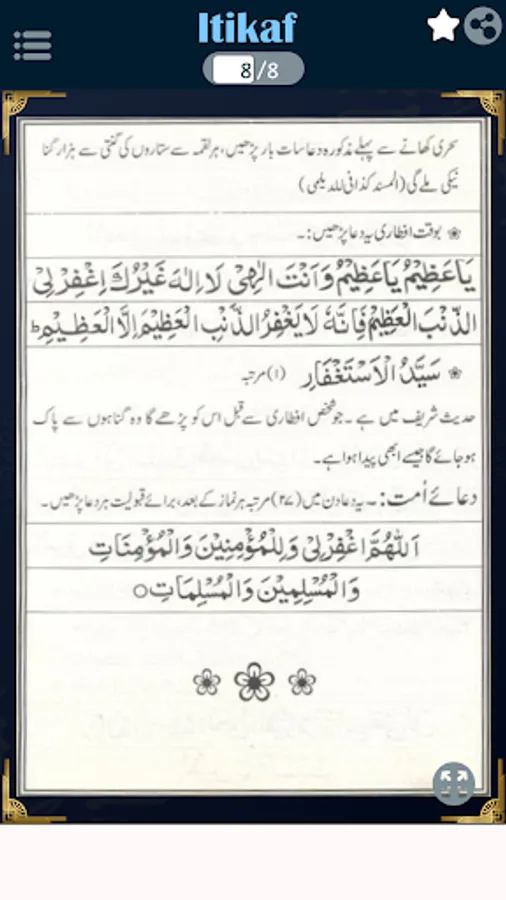 Itikaf
8/8
سحری کھانے سے پہلے مذکورہ دعا سات بار پڑھیں، ہر لقمہ سے ستاروں کی گنتی سے ہزار گنا
نیکی ملے گی (المسند کذافی للدیلمی)
❀ بوقت افطاری یہ دعا پڑھیں:۔
يَا عَظِيْمُ يَا عَظِيْمُ وَاَنْتَ اِلٰهِىْ لَا اِلٰهَ غَيْرُكَ اِغْفِرْ لِىْ
الذَّنْبَ الْعَظِيْمَ فَاِنَّهٗ لَا يَغْفِرُ الذَّنْبَ الْعَظِيْمَ اِلَّا الْعَظِيْمِ ط
❀ سَيِّدُ الْاِسْتَغْفَارِ (۱) مرتبہ
حدیث شریف میں ہے ۔ جو شخص افطاری سے قبل اس کو پڑھے گا وہ گناہوں سے پاک
ہو جائے گا جیسے ابھی پیدا ہوا ہے۔
دعائے اُمت:۔ یہ دعا دن میں (۲۷) مرتبہ ہر نماز کے بعد، برائے قبولیت ہر دعا پڑھیں۔
اَللّٰهُمَّ اغْفِرْ لِىْ وَلِلْمُؤْمِنِيْنَ وَالْمُؤْمِنَاتِ
وَالْمُسْلِمِيْنَ وَالْمُسْلِمَاتِ○